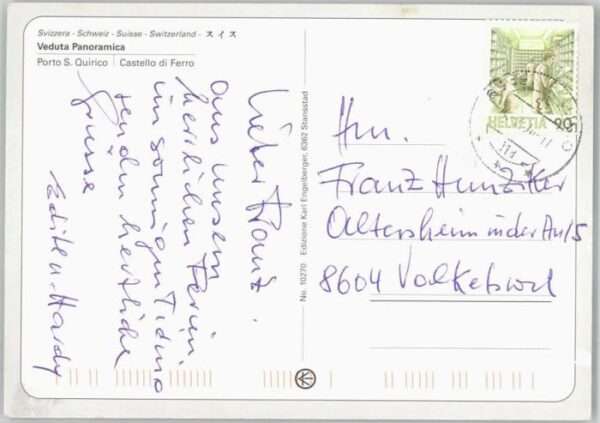 Svizzera - Schweiz - Suisse - Switzerland - スイス
Veduta Panoramica
Porto S. Quirico | Castello di Ferro
Lieber Franz.
Aus unsern
herrlichen Ferien
im sonnigen Ticino
senden herzliche
Grüsse
Edith + Hardy
No. 10270 Edizione Karl Engelberger, 6362 Stansstad
HELVETIA 90
Hrn.
Franz Hunziker
Altersheim in der Au/5
8604 Volketswil